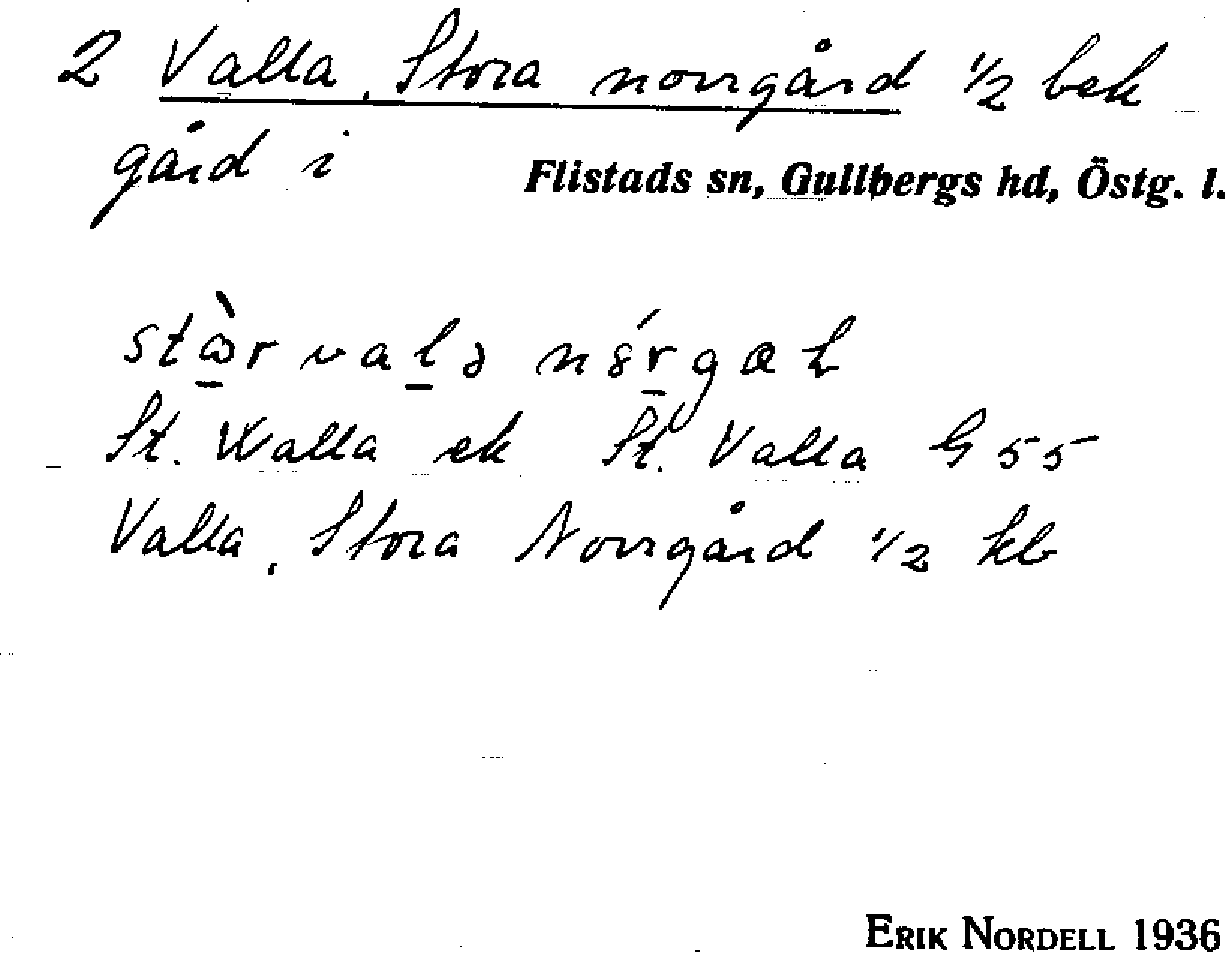 2 Valla, Stora norrgård 1/2 bek
gård i Flistads sn, Gullbergs hd, Östg. l.
St. Walla ek St. Valla G 55
Valla, Stora Norrgård 1/2 kb
ERIK NORDELL 1936